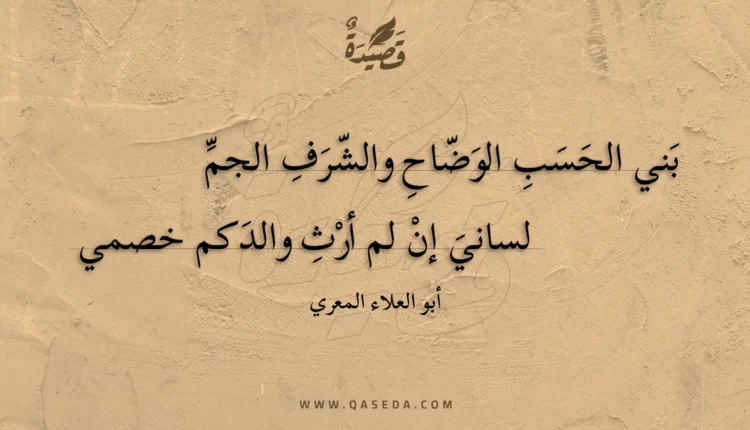 قَصِيْدَةٌ
بَني الحَسَبِ الوَضّاحِ والشّرَفِ الجمِّ
لسانيَ إنْ لم أرْثِ والدَكم خصمي
أبو العلاء المعري
WWW.QASEDA.COM